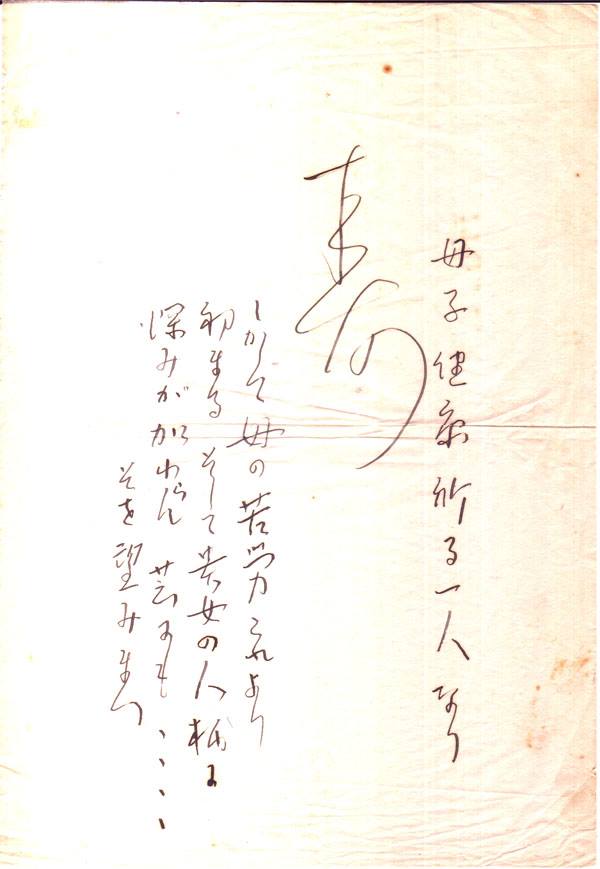 母子健康祈る一人なり
寿
しかして母の苦労これより
初まるそして貴女の人格に
深みが加わらん 芸にも、、、、
そを望みます